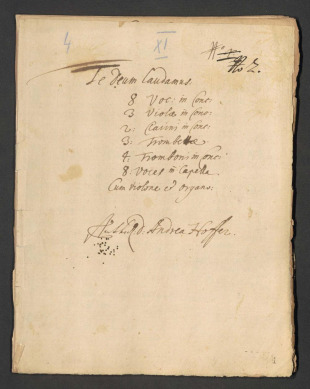 4 XI
No 2.
Te Deum Laudamus.
8 Voc: in Conc:
3 Violae in Conc:
2: Clarini in Conc:
3: Trombettae
4: Trombon: in Conc:
8: Voces in Capella.
Cum Violone et Organo:
D. Andrea Hoffer.